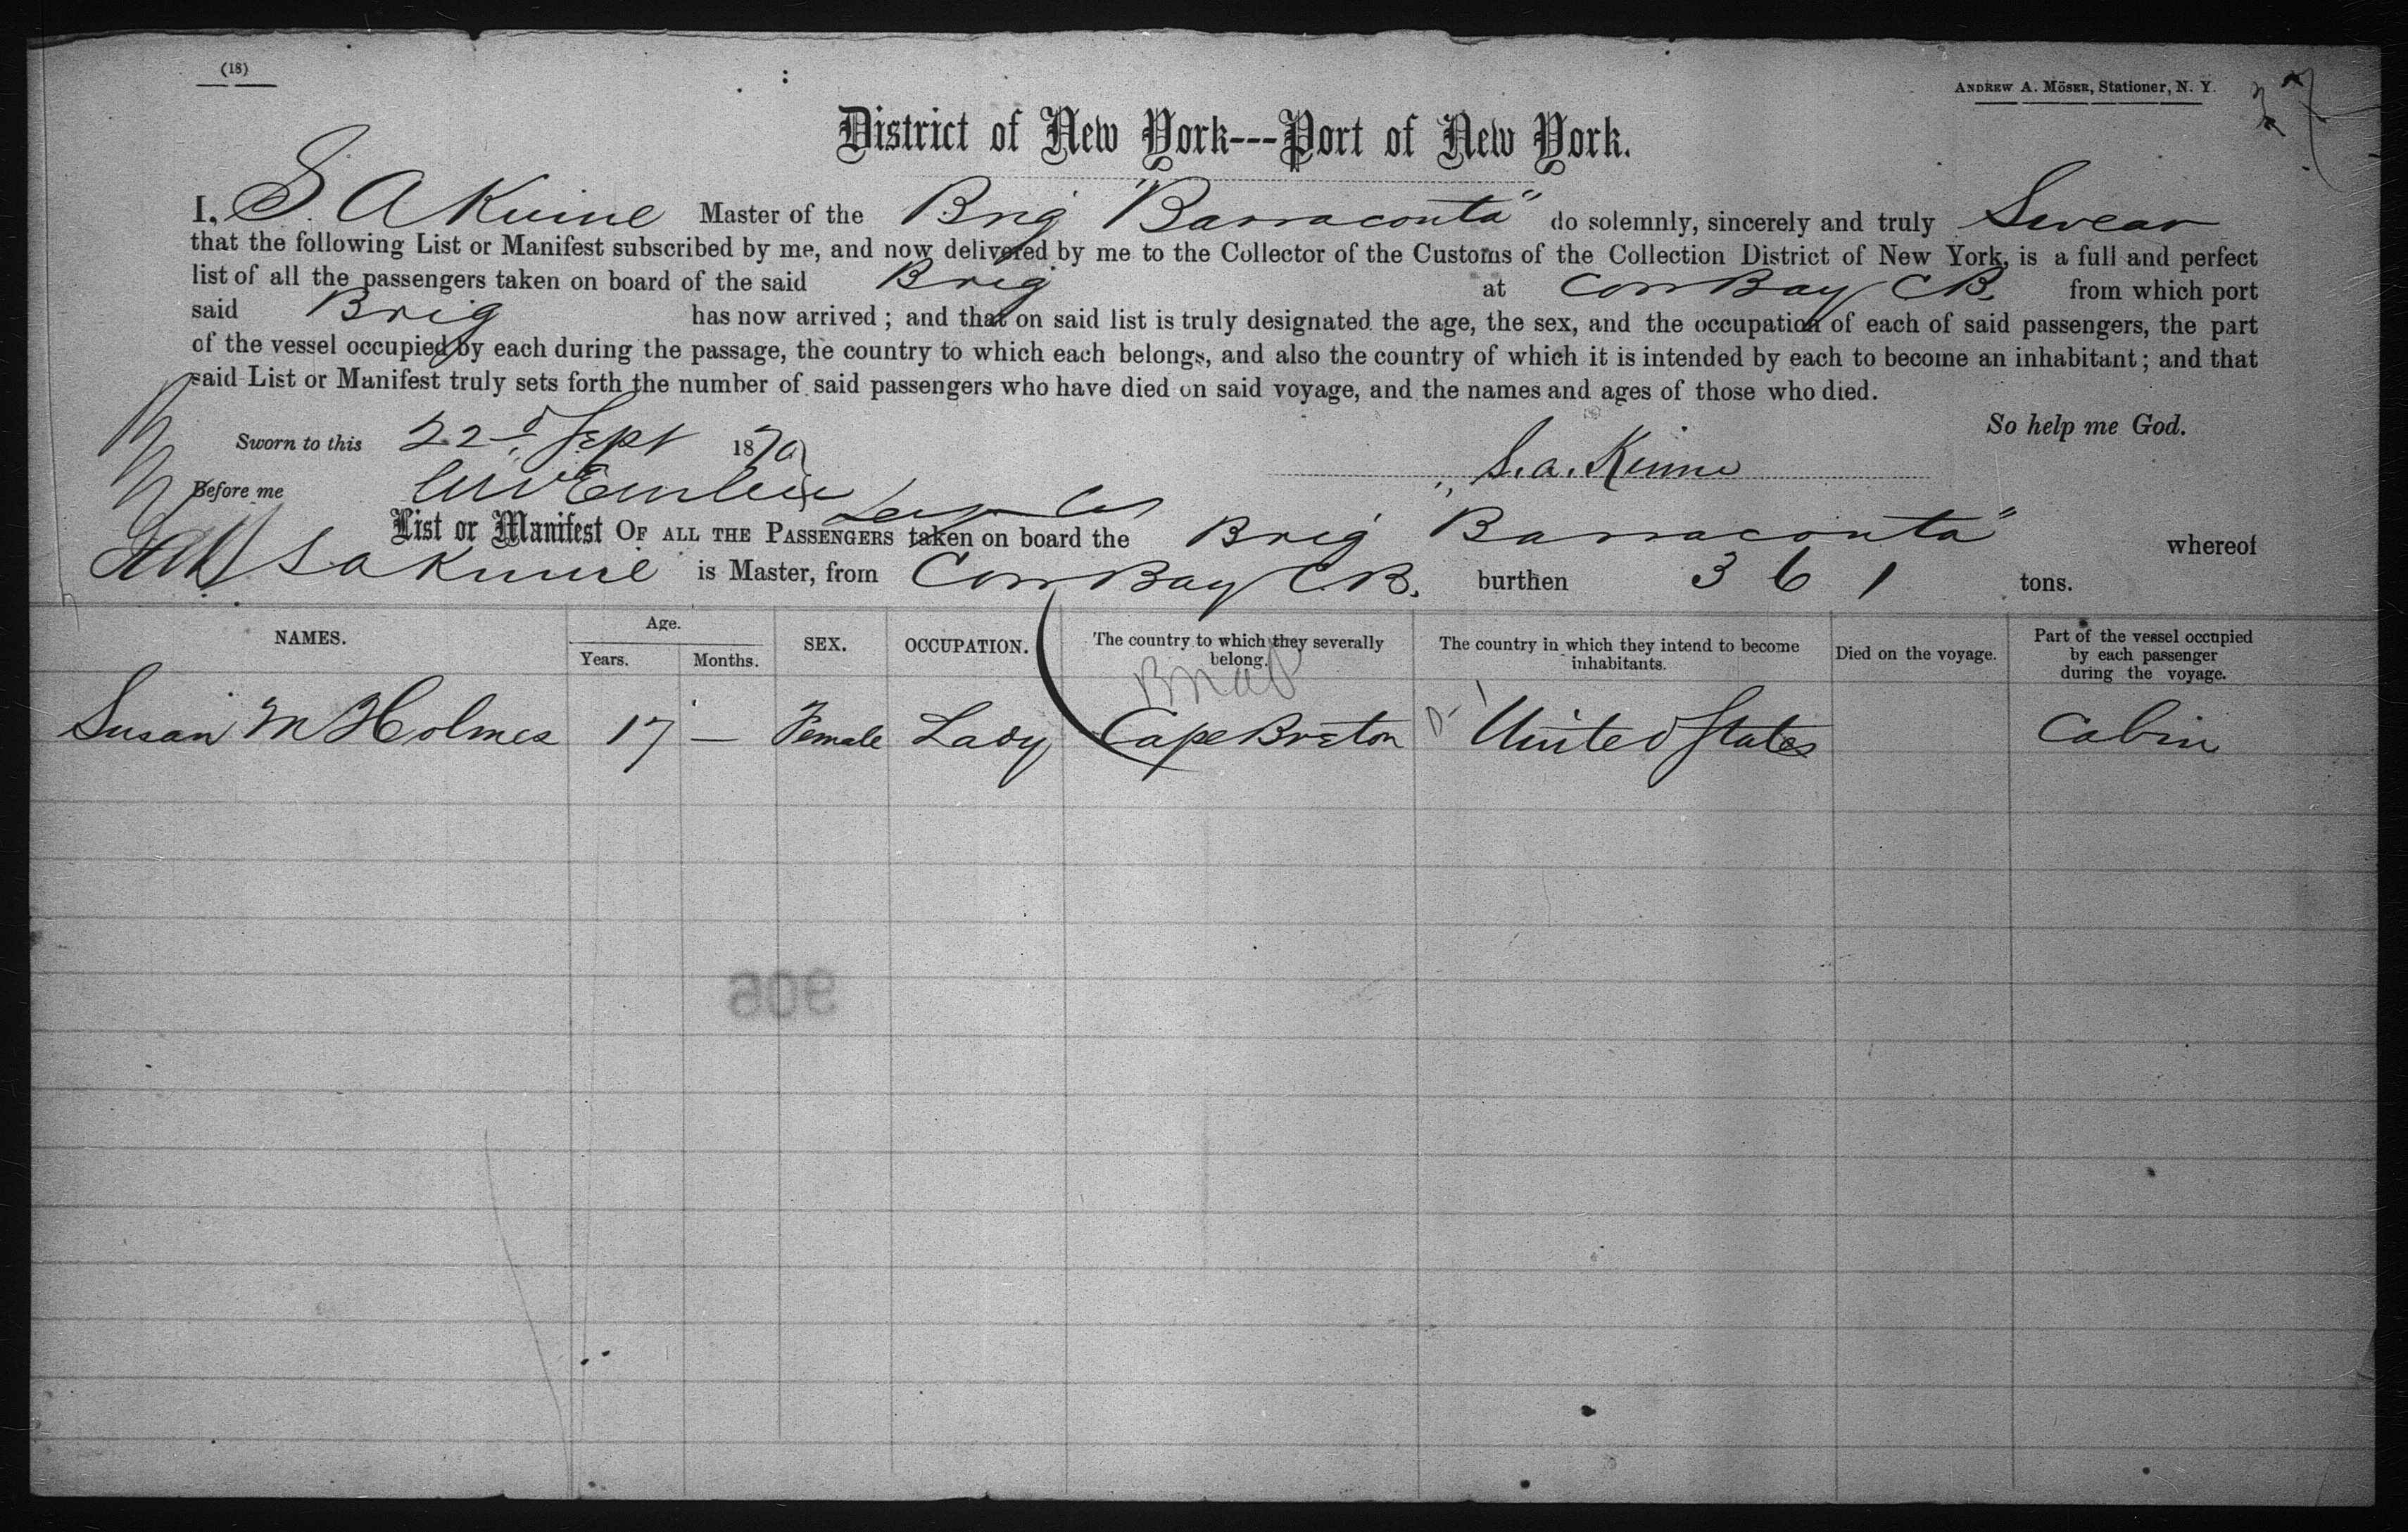 (18)
Andrew A. Möser, Stationer, N. Y.
District of New York---Port of New York.
I, S. A Kinne Master of the Brig "Barraconta" do solemnly, sincerely and truly Swear
that the following List or Manifest subscribed by me, and now delivered by me to the Collector of the Customs of the Collection District of New York, is a full and perfect
list of all the passengers taken on board of the said Brig at Cow Bay C B. from which port
said Brig has now arrived ; and that on said list is truly designated the age, the sex, and the occupation of each of said passengers, the part
of the vessel occupied by each during the passage, the country to which each belongs, and also the country of which it is intended by each to become an inhabitant ; and that
said List or Manifest truly sets forth the number of said passengers who have died on said voyage, and the names and ages of those who died.
So help me God.
Sworn to this 22d Sept 1870
S. a. Kinne
Before me
List or Manifest Of all the Passengers taken on board the Brig "Barraconta" whereof
S A Kinne is Master, from Cow Bay C. B. burthen 361 tons.
NAMES. Age. Years. Months. SEX. OCCUPATION. The country to which they severally belong. The country in which they intend to become inhabitants. Died on the voyage. Part of the vessel occupied by each passenger during the voyage.
Susan M Holmes 17 — Female Lady Cape Breton United States Cabin